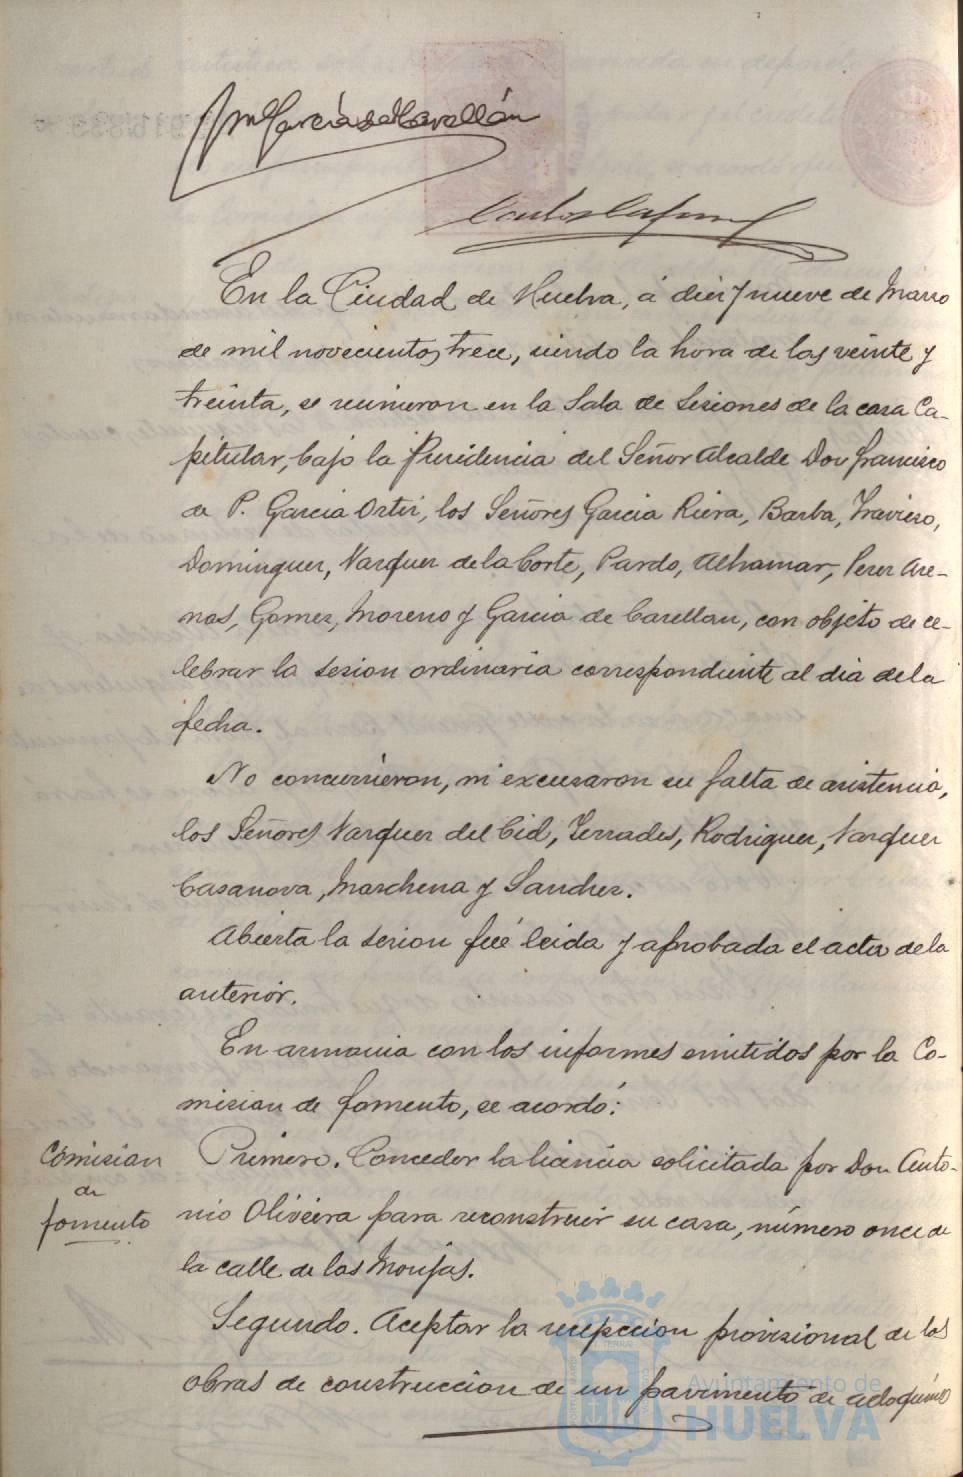 Jn García de Cavellán
Carlos
En la Ciudad de Huelva, á diez y nueve de Marzo
de mil novecientos trece, siendo la hora de las veinte y
treinta, se reunieron en la Sala de Sesiones de la casa Ca-
pitular, bajo la Presidencia del Señor Alcalde Don Francisco
de P. Garcia Ortiz, los Señores Garcia Riera, Barba, Travieso,
Dominguez, Vazquez de la Corte, Pardo, Alhamar, Perez Are-
nas, Gomez, Moreno y Garcia de Carellan, con objeto de ce-
lebrar la sesion ordinaria correspondiente al dia de la
fecha.
No concurrieron, ni excusaron su falta de asistencia,
los Señores Vazquez del Cid, Terrades, Rodriguez, Vazquez
Casanova, Marchena y Sanchez.
Abierta la sesion fué leida y aprobada el acta de la
anterior.
En armonia con los informes emitidos por la Co-
mision de fomento, se acordó:
Comision
de
fomento
Primero. Conceder la licencia solicitada por Don Anto-
nio Oliveira para reconstruir su casa, número once de
la calle de las Monjas.
Segundo. Aceptar la recepccion provisional de las
obras de construccion de un pavimento de adoquines
Ayuntamiento de
HUELVA